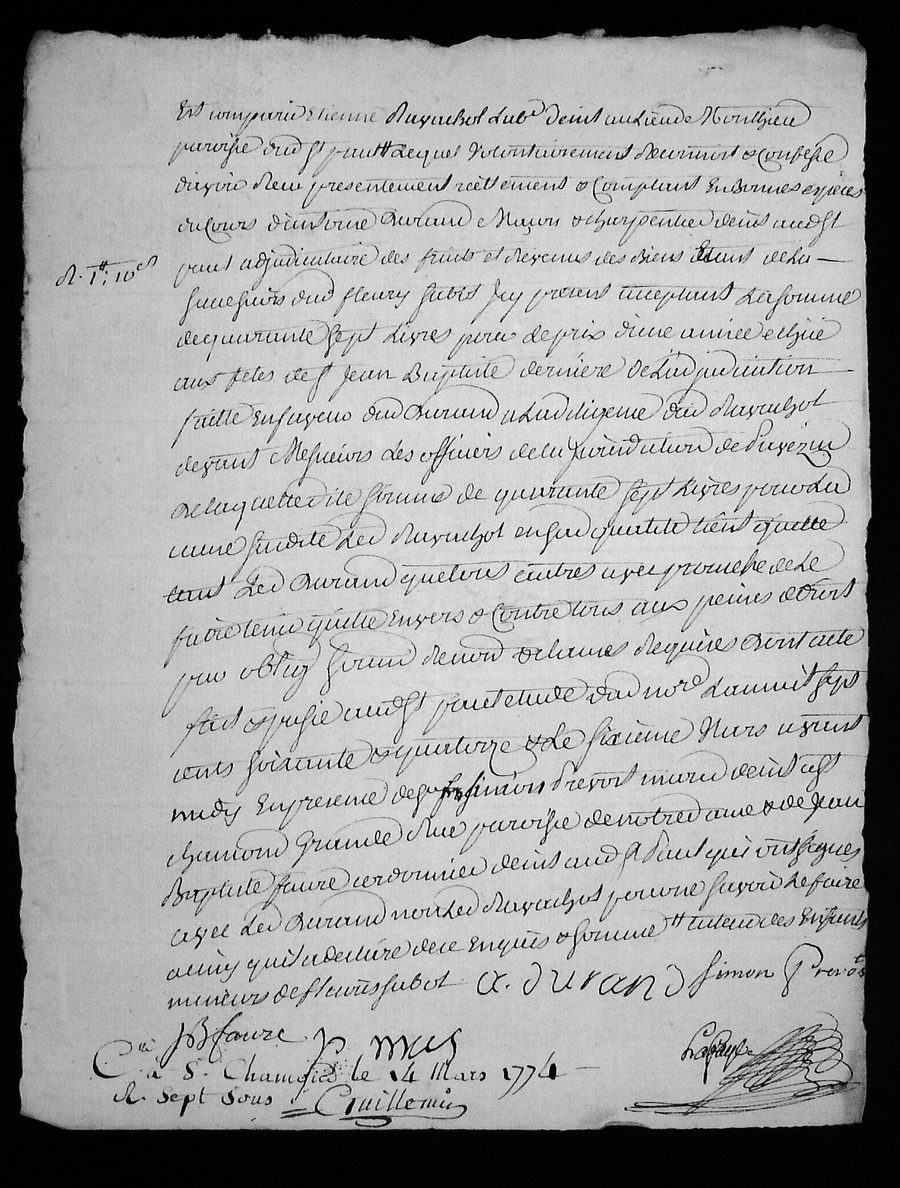 Est comparu Etienne Ravachol Lab.r demt au Lieu de Monthieu
paroisse dud St paul Lequel volontairement Reconnoit & Confesse
davoir Reçu presentement réellement & Comptant En Bonnes espèces
du Cours d'antoine Durand Maçon & charpentier demt aud St
R. 1tt: 10s
paul adjudicataire des fruits et Revenus des Biens Etant de La
Succession dud fleury Sabot Icy présent acceptant La Somme
de quarante Sept Livres pour Le prix d'une année echüe
aux fetes de St Jean Baptiste dernière de L'adjudication
faitte En faveur dud Durand a La diligence dud Ravachol
devant Messieurs Les officiers de la jurisdiction de
De laquelle dite Somme de quarante Sept Livres pour La
cause Susdite Led Ravachol en Sad qualité tient quitte
tant Led Durand que tous autres avec promesse de Le
faire tenir quitte Envers & Contre tous aux peines de droit
par oblig Soumis Renon & clauses Requises Dont acte
fait & passé aud St paul etude dud no.re L'an mil sept
cents Soixante & quatorze & Le Sixieme Mars avant
midy En présence de Simon Prevost demt a St
chamond Grande Rue paroisse de notre dame & de Jean
Baptiste faure cordonnier demt aud St Paul qui ont Signés
avec Led Durand non Led Ravachol pour ne Savoir Le faire
ainsy qu'il a déclaré de ce Enquis & Sommé des Enfants
mineurs de fleury Sabot a. durand Simon Prevot
JB faure
C.lé à St Chamond le 14 Mars 1774
R. Sept Sous Guillemin